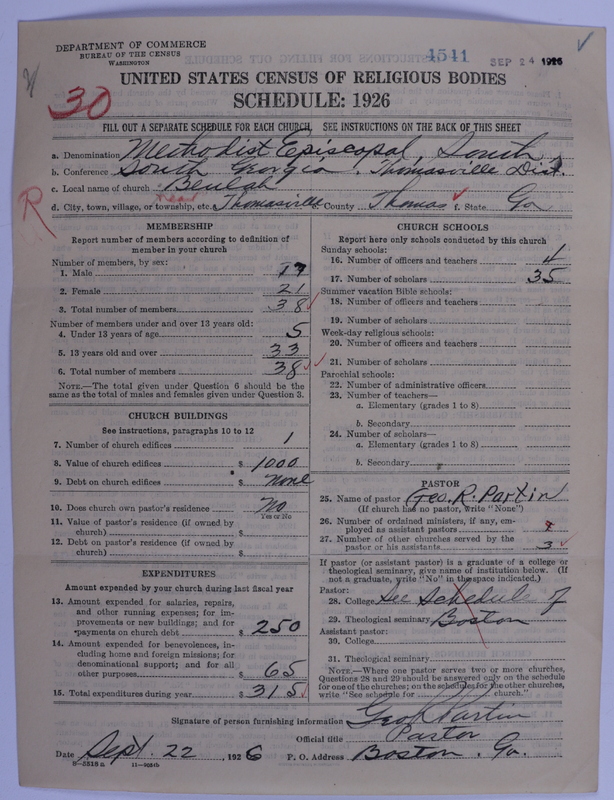 DEPARTMENT OF COMMERCE
BUREAU OF THE CENSUS
WASHINGTON
4541
SEP 24 1926
30
UNITED STATES CENSUS OF RELIGIOUS BODIES
SCHEDULE: 1926
FILL OUT A SEPARATE SCHEDULE FOR EACH CHURCH. SEE INSTRUCTIONS ON THE BACK OF THIS SHEET
a. Denomination Methodist Episcopal, South
b. Conference South Georgia. Thomasville Dist.
c. Local name of church Beulah
near
d. City, town, village, or township, etc. Thomasville e. County Thomas f. State Ga
R
MEMBERSHIP
Report number of members according to definition of
member in your church
Number of members, by sex:
1. Male 17
2. Female 21
3. Total number of members 38
Number of members under and over 13 years old:
4. Under 13 years of age 5
5. 13 years old and over 33
6. Total number of members 38
NOTE.—The total given under Question 6 should be the
same as the total of males and females given under Question 3.
CHURCH BUILDINGS
See instructions, paragraphs 10 to 12
7. Number of church edifices 1
8. Value of church edifices $ 1000
9. Debt on church edifices $ None
10. Does church own pastor's residence No
Yes or No
11. Value of pastor's residence (if owned by
church) $
12. Debt on pastor's residence (if owned by
church) $
EXPENDITURES
Amount expended by your church during last fiscal year
13. Amount expended for salaries, repairs,
and other running expenses; for im-
provements or new buildings; and for
payments on church debt $ 250
14. Amount expended for benevolences, in-
cluding home and foreign missions; for
denominational support; and for all
other purposes $ 65
15. Total expenditures during year $ 315
CHURCH SCHOOLS
Report here only schools conducted by this church
Sunday schools:
16. Number of officers and teachers 4
17. Number of scholars 35
Summer vacation Bible schools:
18. Number of officers and teachers
19. Number of scholars
Week-day religious schools:
20. Number of officers and teachers
21. Number of scholars
Parochial schools:
22. Number of administrative officers
23. Number of teachers—
a. Elementary (grades 1 to 8)
b. Secondary
24. Number of scholars—
a. Elementary (grades 1 to 8)
b. Secondary
PASTOR
25. Name of pastor Geo. R. Partin
(If church has no pastor, write "None")
26. Number of ordained ministers, if any, em-
ployed as assistant pastors
27. Number of other churches served by the
pastor or his assistants 3
If pastor (or assistant pastor) is a graduate of a college or
theological seminary, give name of institution below. (If
not a graduate, write "No" in the space indicated.)
Pastor:
28. College See Schedule of
29. Theological seminary Boston
Assistant pastor:
30. College
31. Theological seminary
NOTE.—Where one pastor serves two or more churches,
Questions 28 and 29 should be answered only on the schedule
for one of the churches; on the schedules for the other churches,
write "See schedule for church."
Signature of person furnishing information Geo R Partin
Official title Pastor
Date Sept. 22, 1926 P. O. Address Boston, Ga.